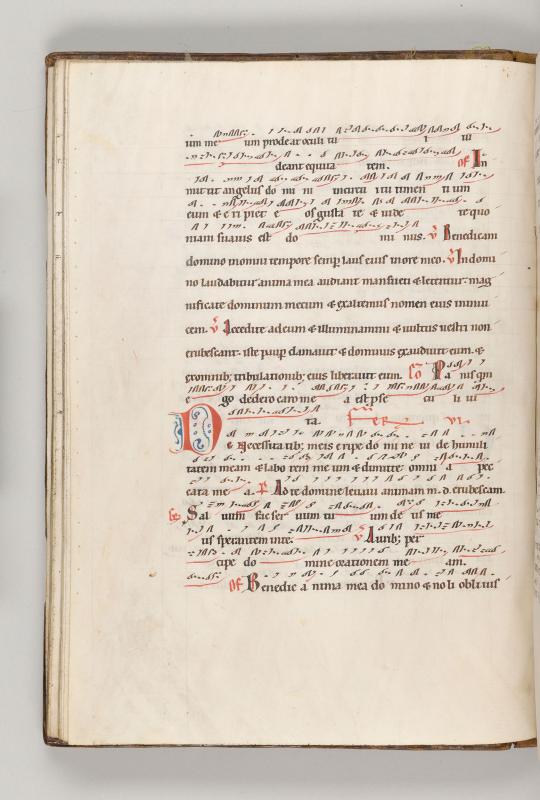 um me um prodeat oculi tu i tu
deant equita tem. Of In
mittit angelus do mi ni incircu itu timen ti um
eum & eripiet eos gusta te & uide te quo
niam suauis est do mi nus. V Benedicam
domino in omni tempore semp laus eius in ore meo. V In domi
no laudabitur anima mea audiant mansueti & letentur. mag
nificate dominum mecum & exaltemus nomen eius in inui
cem. V Accedite ad eum & illuminamini & uultus uestri non
erubescant. iste paup clamauit & dominus exaudiuit eum. &
ex omnib; tribulationib; eius liberauit eum. Co Panis que
ego dedero caro mea est p se cu li ui
ta. Feria VI.
De Necessitatib; meis eripe do mi ne ui de humili
tatem meam & labo rem me um & dimitte omni a pec
cata me a. P Ad te domine leuaui animam m. d. erubescam.
Saluum fac ser uum tu um de us me
us sperantem in te. V Auribus per
cipe do mine orationem me am.
Of Benedic a nima mea do mino & noli obliuis